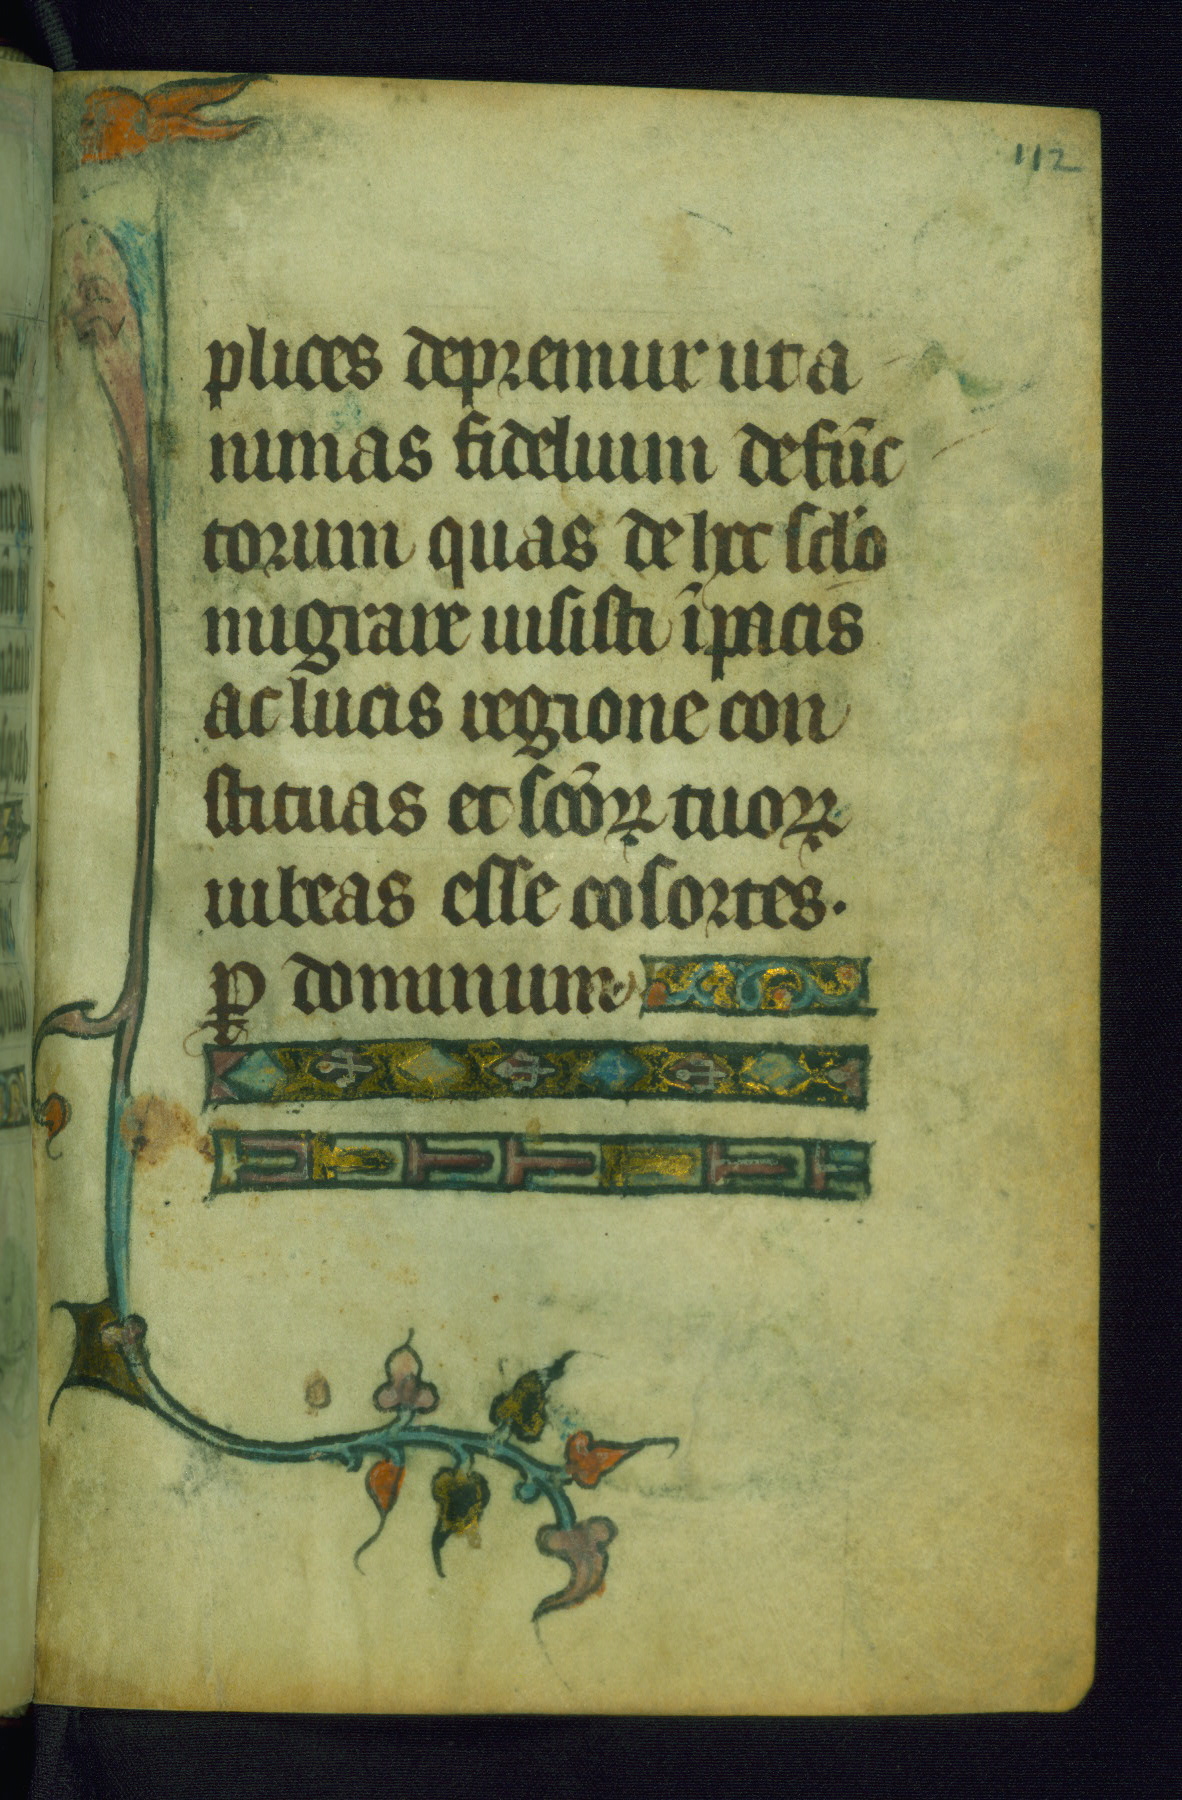 112
plices depremur ut a
nimas fidelium defūc
torum quas de hoc sclo
migrare iusisti ī pacis
ac lucis regione con
stituas et scōꝝ tuoꝝ
iubeas esse cōsortes.
ꝑ dominum